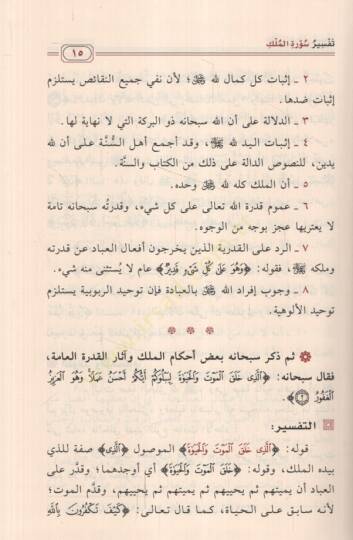 تفسير سورة الملك
١٥
٢ ـ إثبات كل كمال لله ﷻ؛ لأن نفي جميع النقائص يستلزم
إثبات ضدها.
٣ ـ الدلالة على أن الله سبحانه ذو البركة التي لا نهاية لها.
٤ ـ إثبات اليد لله ﷻ، وقد أجمع أهل السُّنَّة على أن لله
يدين، للنصوص الدالة على ذلك من الكتاب والسنَّة.
٥ ـ أن الملك كله لله ﷻ وحده.
٦ ـ عموم قدرة الله تعالى على كل شيء، وقدرتُه سبحانه تامة
لا يعتريها عجز بوجه من الوجوه.
٧ ـ الرد على القدرية الذين يخرجون أفعال العباد عن قدرته
وملكه ﷻ، فقوله: ﴿وَهُوَ عَلَىٰ كُلِّ شَيْءٍ قَدِيرٌ﴾ عام لا يُستثنى منه شيء.
٨ ـ وجوب إفراد الله ﷻ بالعبادة فإن توحيد الربوبية يستلزم
توحيد الألوهية.
* * *
ثم ذكر سبحانه بعض أحكام الملك وآثار القدرة العامة،
فقال سبحانه: ﴿ٱلَّذِي خَلَقَ ٱلْمَوْتَ وَٱلْحَيَوٰةَ لِيَبْلُوَكُمْ أَيُّكُمْ أَحْسَنُ عَمَلًا وَهُوَ ٱلْعَزِيزُ
ٱلْغَفُورُ ۝٢﴾.
التفسير:
قوله: ﴿ٱلَّذِي خَلَقَ ٱلْمَوْتَ وَٱلْحَيَوٰةَ﴾ الموصول ﴿ٱلَّذِي﴾ صفة للذي
بيده الملك، وقوله: ﴿خَلَقَ ٱلْمَوْتَ وَٱلْحَيَوٰةَ﴾ أي أوجدهما؛ وقدَّر على
العباد أن يميتهم ثم يحييهم ثم يميتهم ثم يُحييهم، وقدَّم الموت؛
لأنه سابق على الحياة، كما قال تعالى: ﴿كَيْفَ تَكْفُرُونَ بِٱللَّهِ